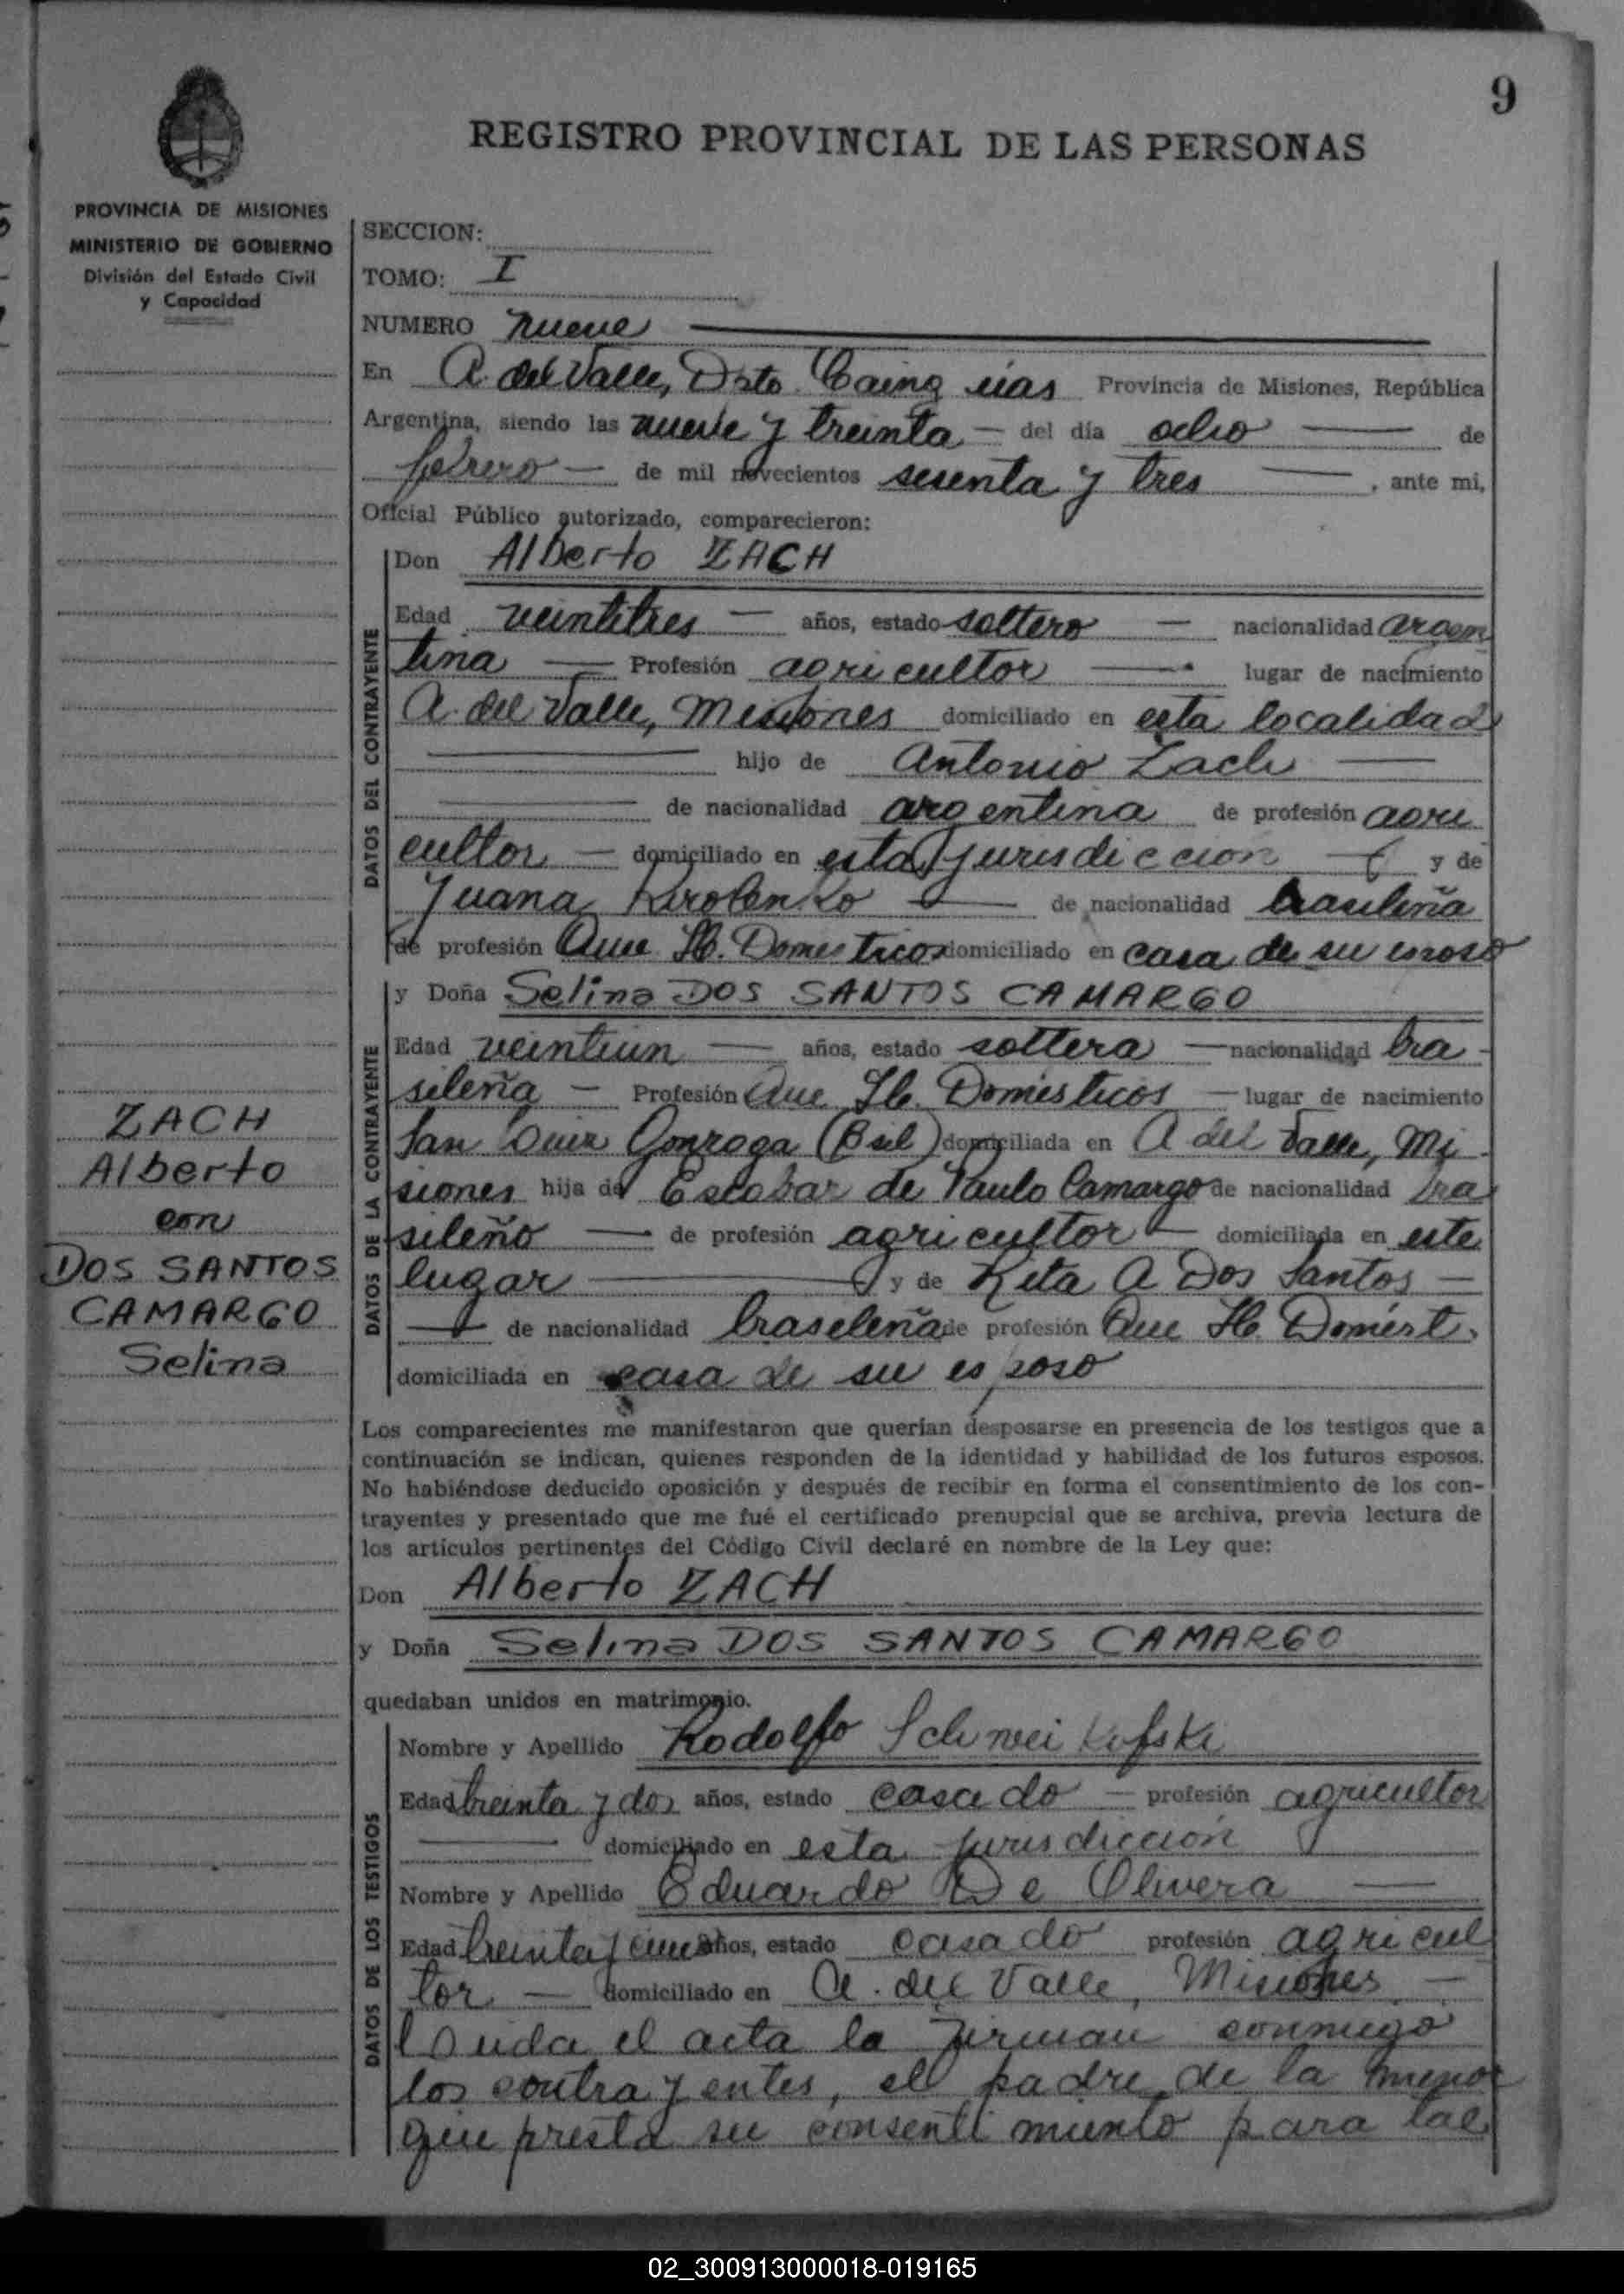 9
REGISTRO PROVINCIAL DE LAS PERSONAS
PROVINCIA DE MISIONES
MINISTERIO DE GOBIERNO
División del Estado Civil
y Capacidad
SECCION:
TOMO: I
NUMERO nueve
En A. del Valle, Dsto Caing uas Provincia de Misiones, República
Argentina, siendo las nueve y treinta — del día ocho — de
febrero — de mil novecientos sesenta y tres —, ante mi,
Oficial Público autorizado, comparecieron:
DATOS DEL CONTRAYENTE
Don Alberto ZACH
Edad veintitres — años, estado soltero — nacionalidad argen
tina — Profesión agricultor — lugar de nacimiento
A. del Valle, Misiones domiciliado en esta localidad
— hijo de Antonio Zach —
— de nacionalidad argentina de profesión agri
cultor — domiciliado en esta jurisdiccion — y de
Juana — de nacionalidad brasileña
de profesión Que Hb. Domesticos domiciliado en casa de su esposo
DATOS DE LA CONTRAYENTE
y Doña Selina DOS SANTOS CAMARGO
Edad veintiun — años, estado soltera — nacionalidad bra-
sileña — Profesión Que Hb. Domésticos — lugar de nacimiento
San Luiz Gonzaga (Bsil) domiciliada en A del Valle, Mi-
siones hija de Escobar de Paulo Camargo de nacionalidad bra
sileño — de profesión agricultor — domiciliada en este
lugar — y de Rita A Dos Santos —
— de nacionalidad brasileña de profesión Que Hb Domést.
domiciliada en casa de su esposo
ZACH
Alberto
con
DOS SANTOS
CAMARGO
Selina
Los comparecientes me manifestaron que querían desposarse en presencia de los testigos que a
continuación se indican, quienes responden de la identidad y habilidad de los futuros esposos.
No habiéndose deducido oposición y después de recibir en forma el consentimiento de los con-
trayentes y presentado que me fué el certificado prenupcial que se archiva, previa lectura de
los artículos pertinentes del Código Civil declaré en nombre de la Ley que:
Don Alberto ZACH
y Doña Selina DOS SANTOS CAMARGO
quedaban unidos en matrimonio.
DATOS DE LOS TESTIGOS
Nombre y Apellido Rodolfo
Edad treinta y dos años, estado casado — profesión agricultor
— domiciliado en esta jurisdiccion
Nombre y Apellido Eduardo De Olivera —
Edad treinta y años, estado casado profesión agricul
tor — domiciliado en A. del Valle, Misiones —
Leida el acta la firman conmigo
los contrayentes, el padre de la menor
que presta su consentimiento para tal
02_300913000018-019165